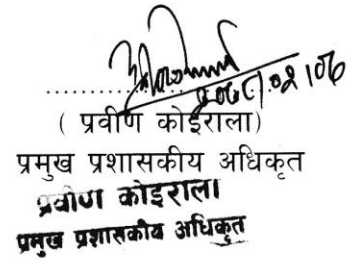 ( प्रवीण कोईराला)
प्रमुख प्रशासकीय अधिकृत
प्रवीण कोइराला
प्रमुख प्रशासकीय अधिकृत